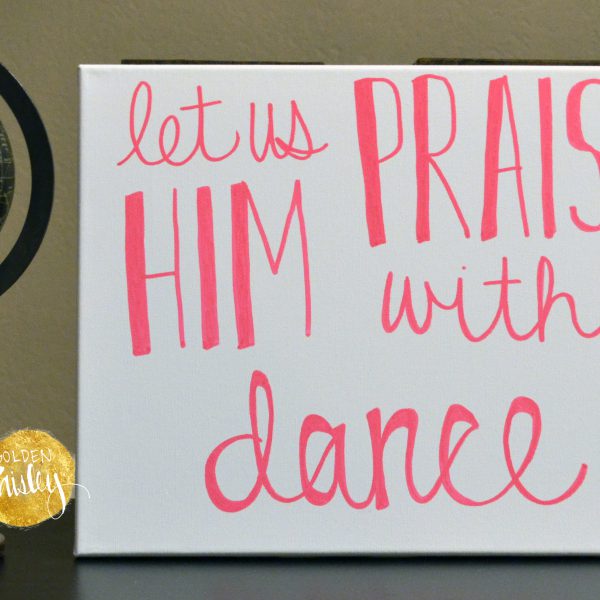 let us PRAIS
HIM with
dance
GOLDEN
aisley